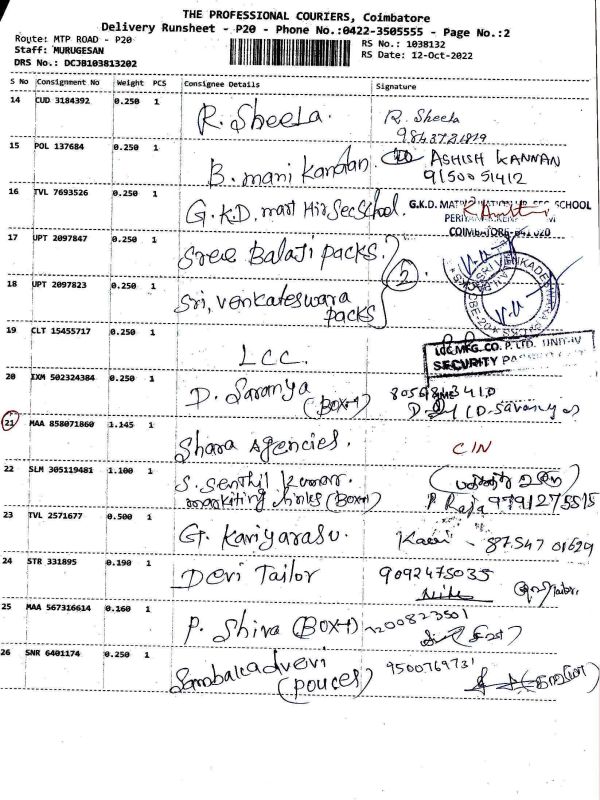 THE PROFESSIONAL COURIERS, Coimbatore
Delivery Runsheet - P20 - Phone No.:0422-3505555 - Page No.:2
Route: MTP ROAD - P20
RS No.: 1038132
Staff: MURUGESAN
RS Date: 12-Oct-2022
DRS No.: DCJB103813202
S No Consignment No Weight PCS Consignee Details Signature
14 CUD 3184392 0.250 1 R. Sheela. R. Sheela
9843721819
15 POL 137684 0.250 1 B. mani kandan. ASHISH KANNAN
9150051412
16 TVL 7693526 0.250 1 G.K.D. matt Hir Sec School. G.K.D. SCHOOL
COIMBATORE-641 020
17 UPT 2097847 0.250 1 Sree Balaji packs. 2
18 UPT 2097823 0.250 1 Sri, venkateswara
packs
19 CLT 15455717 0.250 1 LCC.
MFG. CO. P. LTD. UNIT-IV
SECURITY
20 IXM 502324384 0.250 1 D. Saranya
(BOX-1)
21 MAA 858071860 1.145 1 Shara Agencies. C/N
22 SLM 305119481 1.100 1 S. Senthil Kumar.
markiting (BOX-1) P Raja 9791275515
23 TVL 2571677 0.500 1 G. Kaviyarasu. Kavi - 87547 01629
24 STR 331895 0.190 1 Devi Tailor 9092475035
25 MAA 567316614 0.160 1 P. Shiva (BOX-1) 7200823501
26 SNR 6401174 0.250 1 9500769731
(pouces)